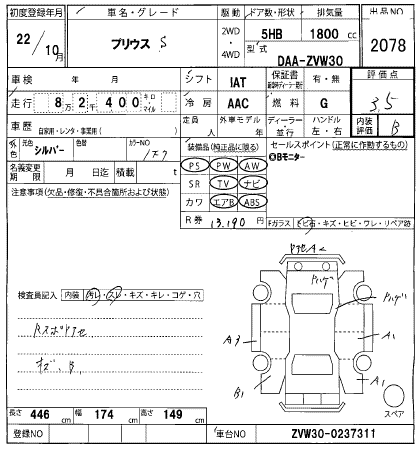 初度登録年月
車名・グレード
駆動
ドア数・形状
排気量
出品NO
22／10月
プリウス S
2WD
・
4WD
5HB
1800 cc
型式
DAA-ZVW30
2078
車検 年 月
シフト
IAT
保証書
有・無
評価点
走行
8万2千400 キロ・マイル
冷房
AAC
燃料
G
3.5
車歴
自家用・レンタ・事業用（ ）
定員 人
外車モデル 年
ディーラー・並行
ハンドル 左・右
内装評価
B
外色
元色
シルバー
色替
カラーNO
1F7
装備品（純正品に限る）
セールスポイント（正常に作動するもの）
◎Bモニター
名義変更期限 月 日迄
積載 t
PS PW AW
SR TV ナビ
カワ エアB ABS
注意事項（欠品・修復・不具合箇所および状態）
R券
13,190 円
Fガラス
トビ石・キズ・ヒビ・ワレ・リペア跡
検査員記入
内装
汚レ・スレ・キズ・キレ・コゲ・穴
A3
A1
B1
A1
スペア
キズ、B
長さ 446 cm
幅 174 cm
高さ 149 cm
登録NO
車台NO
ZVW30-0237311